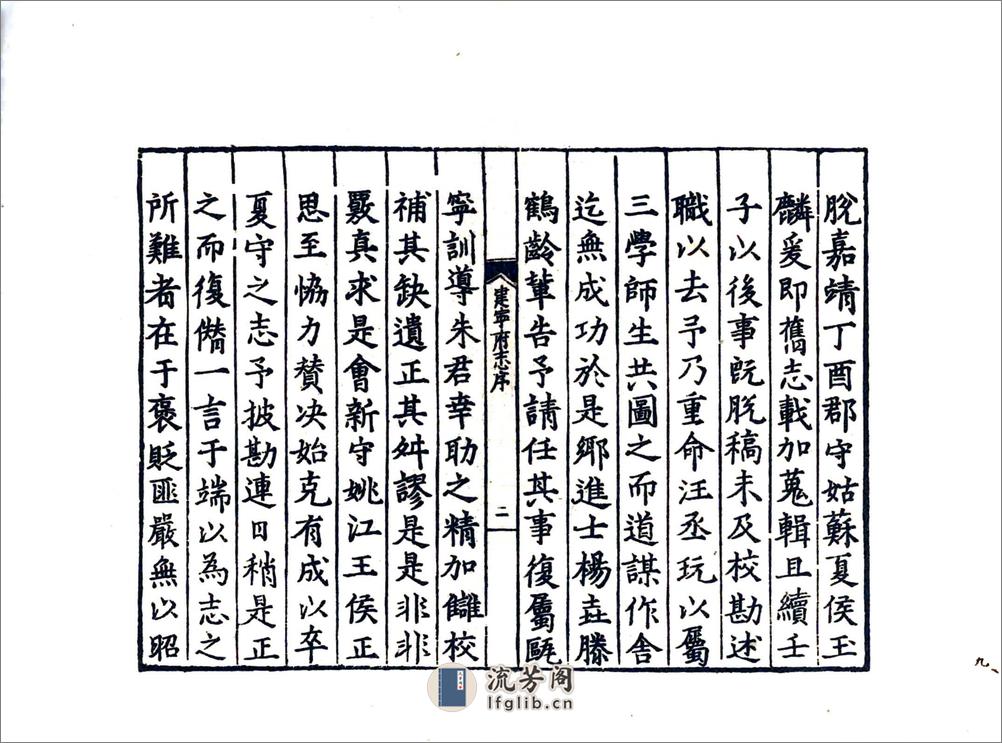 脫嘉靖丁酉郡守姑蘇夏侯玉
麟爰即舊志載加蒐輯且續壬
子以後事旣脫稿未及校勘述
職以去予乃重命汪丞玩以屬
三學師生共圖之而道謀作舍
迄無成功於是鄉進士楊垚滕
鶴齡軰告予請任其事復屬甌
建寧府志序
二
寧訓導朱君幸助之精加讎校
補其缺遺正其舛謬是是非非
覈真求是會新守姚江王侯正
思至恊力贊决始克有成以卒
夏守之志予披勘連日稍是正
之而復僃一言于端以為志之
所難者在于褒貶匪嚴無以昭
九一
流芳阁
lfglib.cn